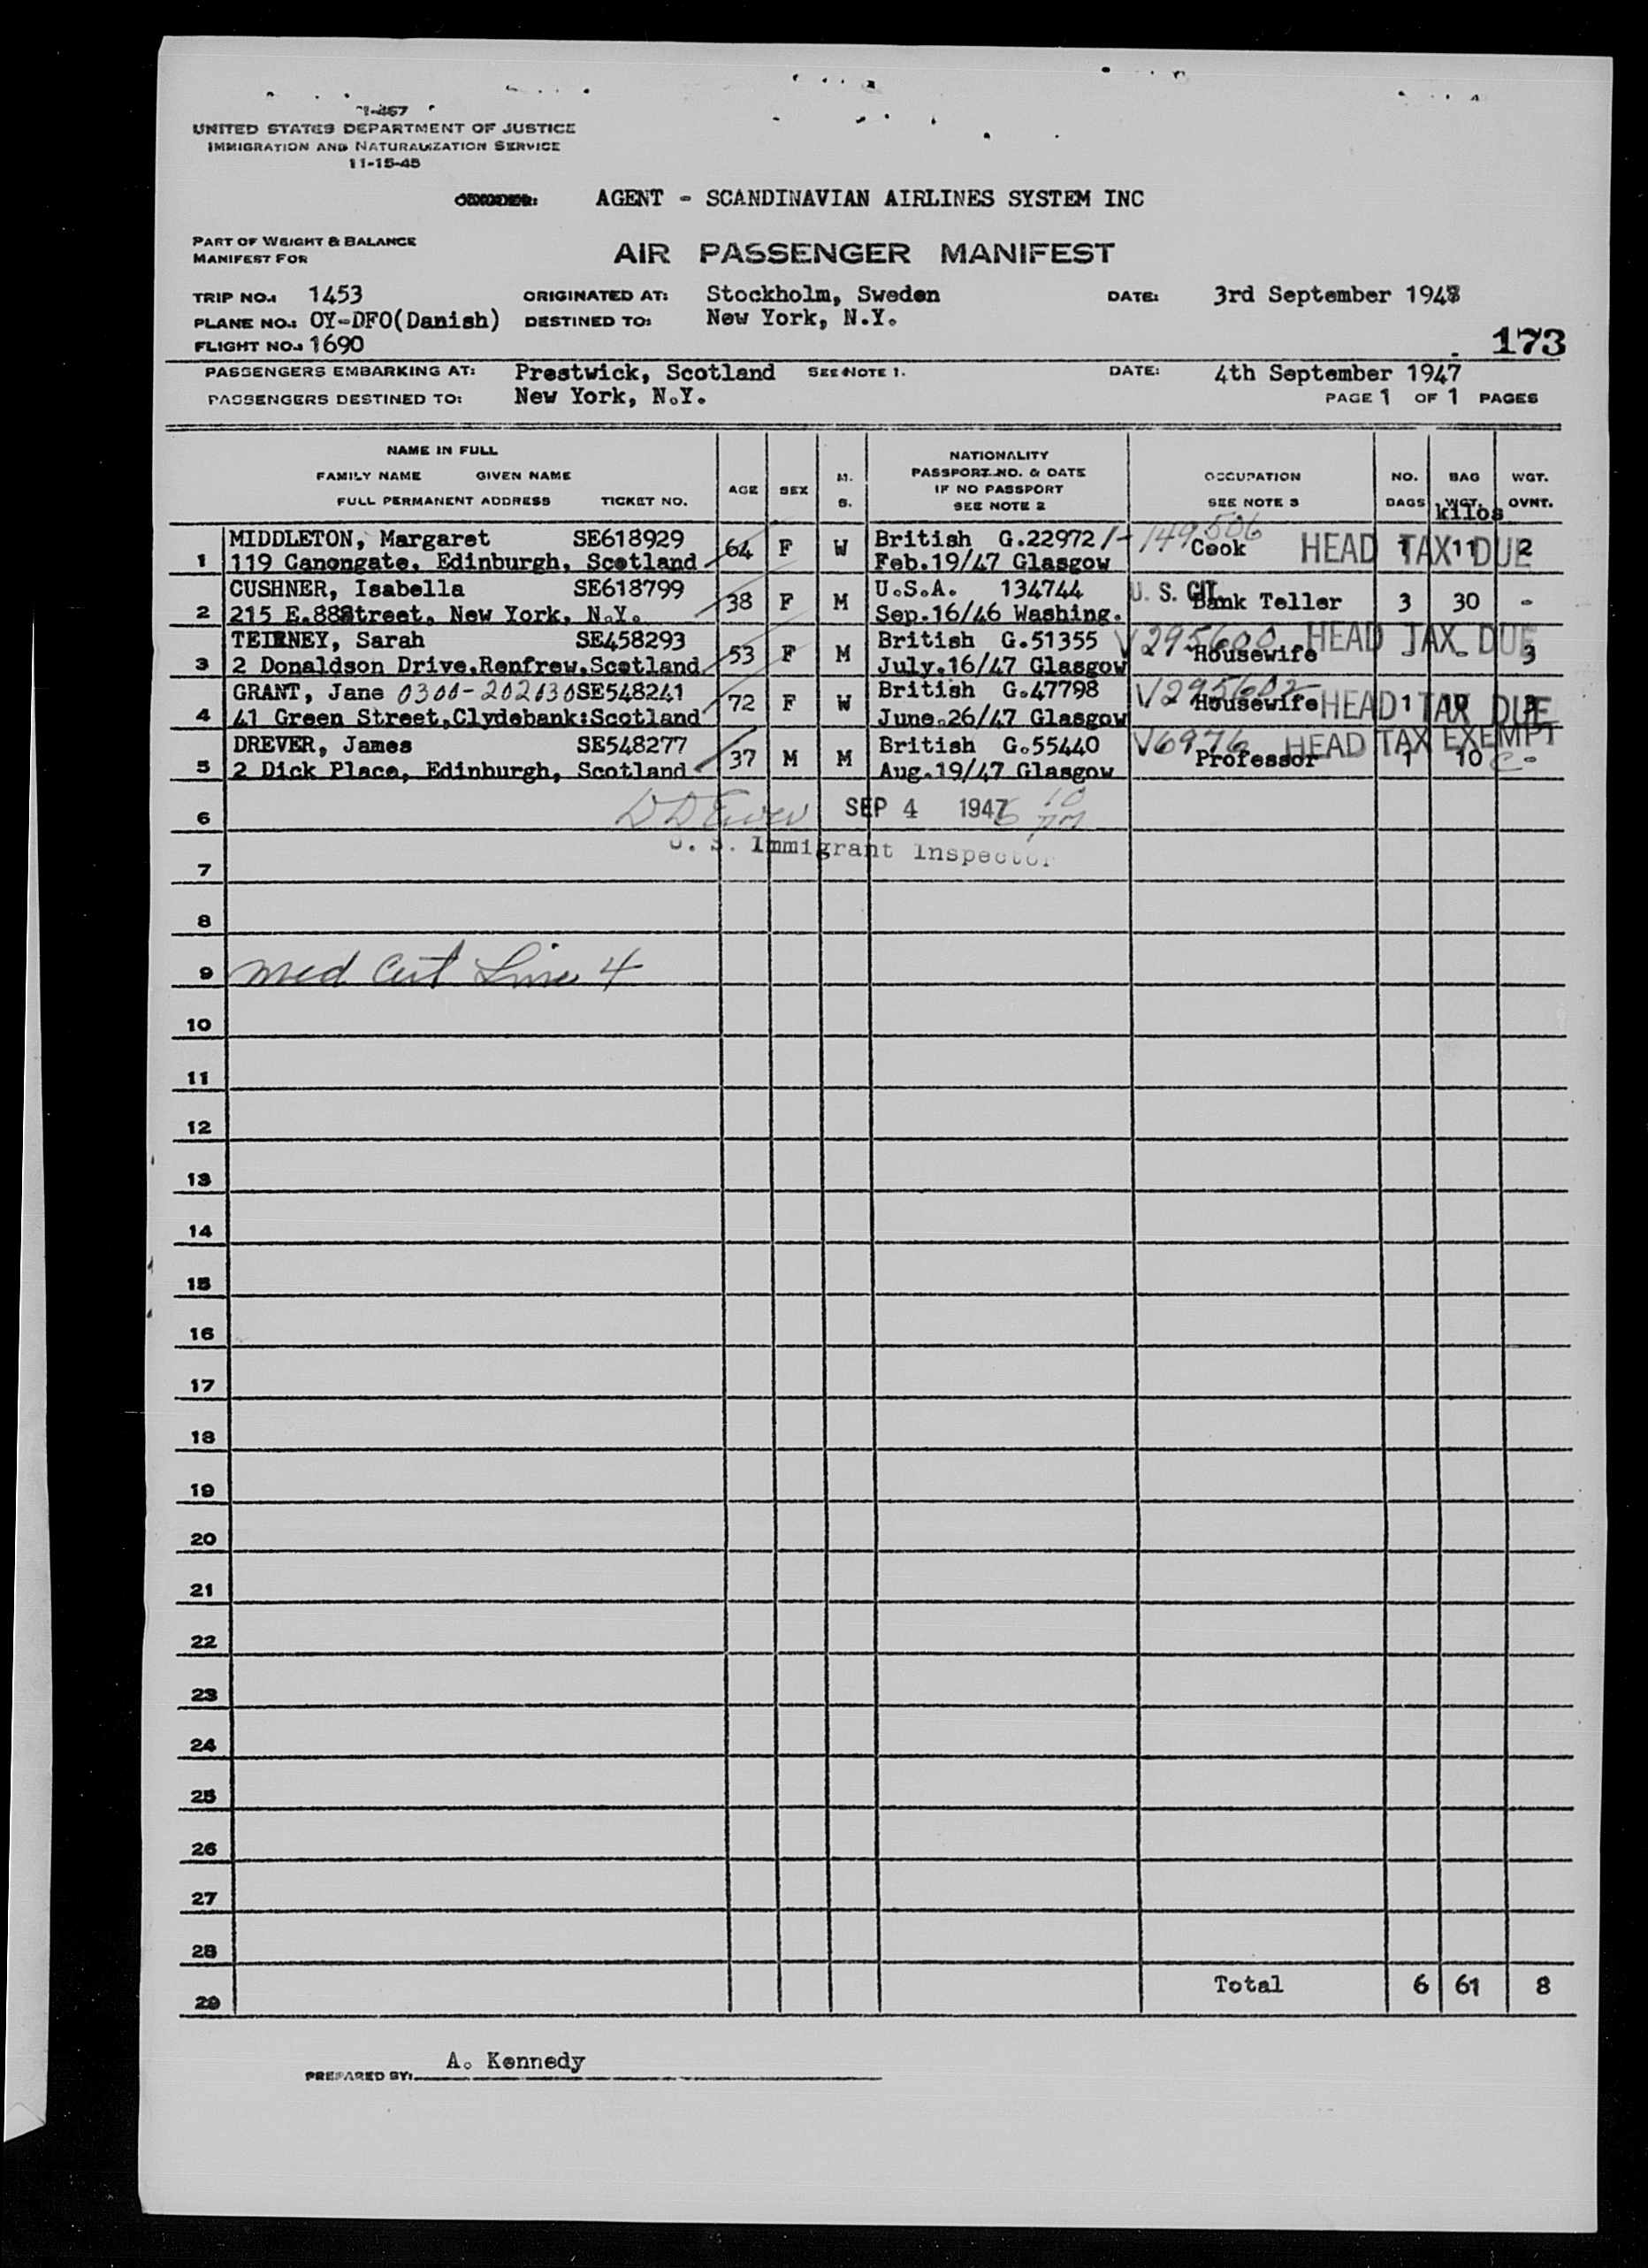 I-467
UNITED STATES DEPARTMENT OF JUSTICE
IMMIGRATION AND NATURALIZATION SERVICE
11-15-45
AGENT - SCANDINAVIAN AIRLINES SYSTEM INC
PART OF WEIGHT & BALANCE
MANIFEST FOR
AIR PASSENGER MANIFEST
TRIP NO.: 1453 ORIGINATED AT: Stockholm, Sweden DATE: 3rd September 1947
PLANE NO.: OY-DFO(Danish) DESTINED TO: New York, N.Y.
FLIGHT NO.: 1690
173
PASSENGERS EMBARKING AT: Prestwick, Scotland SEE NOTE 1. DATE: 4th September 1947
PASSENGERS DESTINED TO: New York, N.Y. PAGE 1 OF 1 PAGES
NAME IN FULL
FAMILY NAME GIVEN NAME
FULL PERMANENT ADDRESS TICKET NO.
AGE SEX M. S.
NATIONALITY
PASSPORT NO. & DATE
IF NO PASSPORT
SEE NOTE 2
OCCUPATION
SEE NOTE 3
NO. BAGS
BAG WGT. kilos
WGT. OVNT.
MIDDLETON, Margaret SE618929 British G.22972 149506
1 119 Canongate, Edinburgh, Scotland 64 F W Feb.19/47 Glasgow Cook 1 11 2 HEAD TAX DUE
CUSHNER, Isabella SE618799 U.S.A. 134744 U. S. CIT.
2 215 E.88Street, New York, N.Y. 38 F M Sep.16/46 Washing. Bank Teller 3 30 -
TEIRNEY, Sarah SE458293 British G.51355 V295600 HEAD TAX DUE
3 2 Donaldson Drive,Renfrew,Scotland 53 F M July.16/47 Glasgow Housewife - - 3
GRANT, Jane 0300-202130 SE548241 British G.47798 V295602
4 41 Green Street,Clydebank:Scotland 72 F W June.26/47 Glasgow Housewife 1 10 3 HEAD TAX DUE
DREVER, James SE548277 British G.55440 V6976 HEAD TAX EXEMPT
5 2 Dick Place, Edinburgh, Scotland 37 M M Aug.19/47 Glasgow Professor 1 10 -
6 SEP 4 1947
U. S. Immigrant Inspector
7
8
9 Med Cert Line 4
10
11
12
13
14
15
16
17
18
19
20
21
22
23
24
25
26
27
28
29 Total 6 61 8
PREPARED BY: A. Kennedy